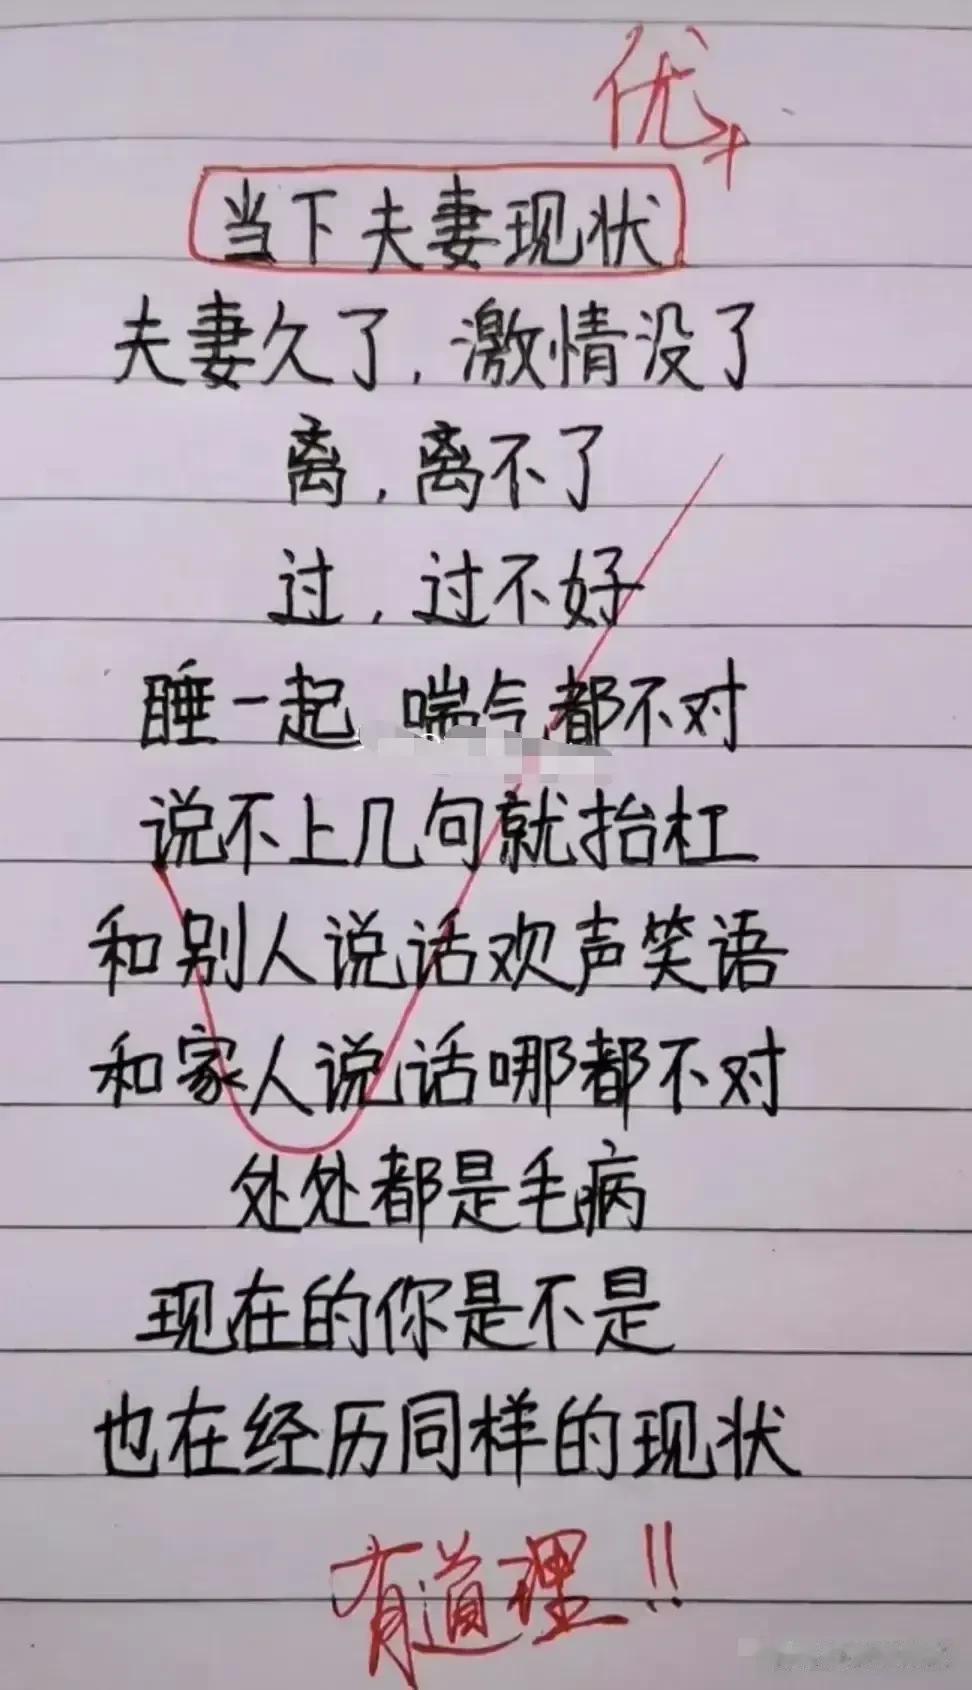 优+
当下夫妻现状
夫妻久了，激情没了
离，离不了
过，过不好
睡一起 喘气都不对
说不上几句就抬杠
和别人说话欢声笑语
和家人说话哪都不对
处处都是毛病
现在的你是不是
也在经历同样的现状
有道理!!